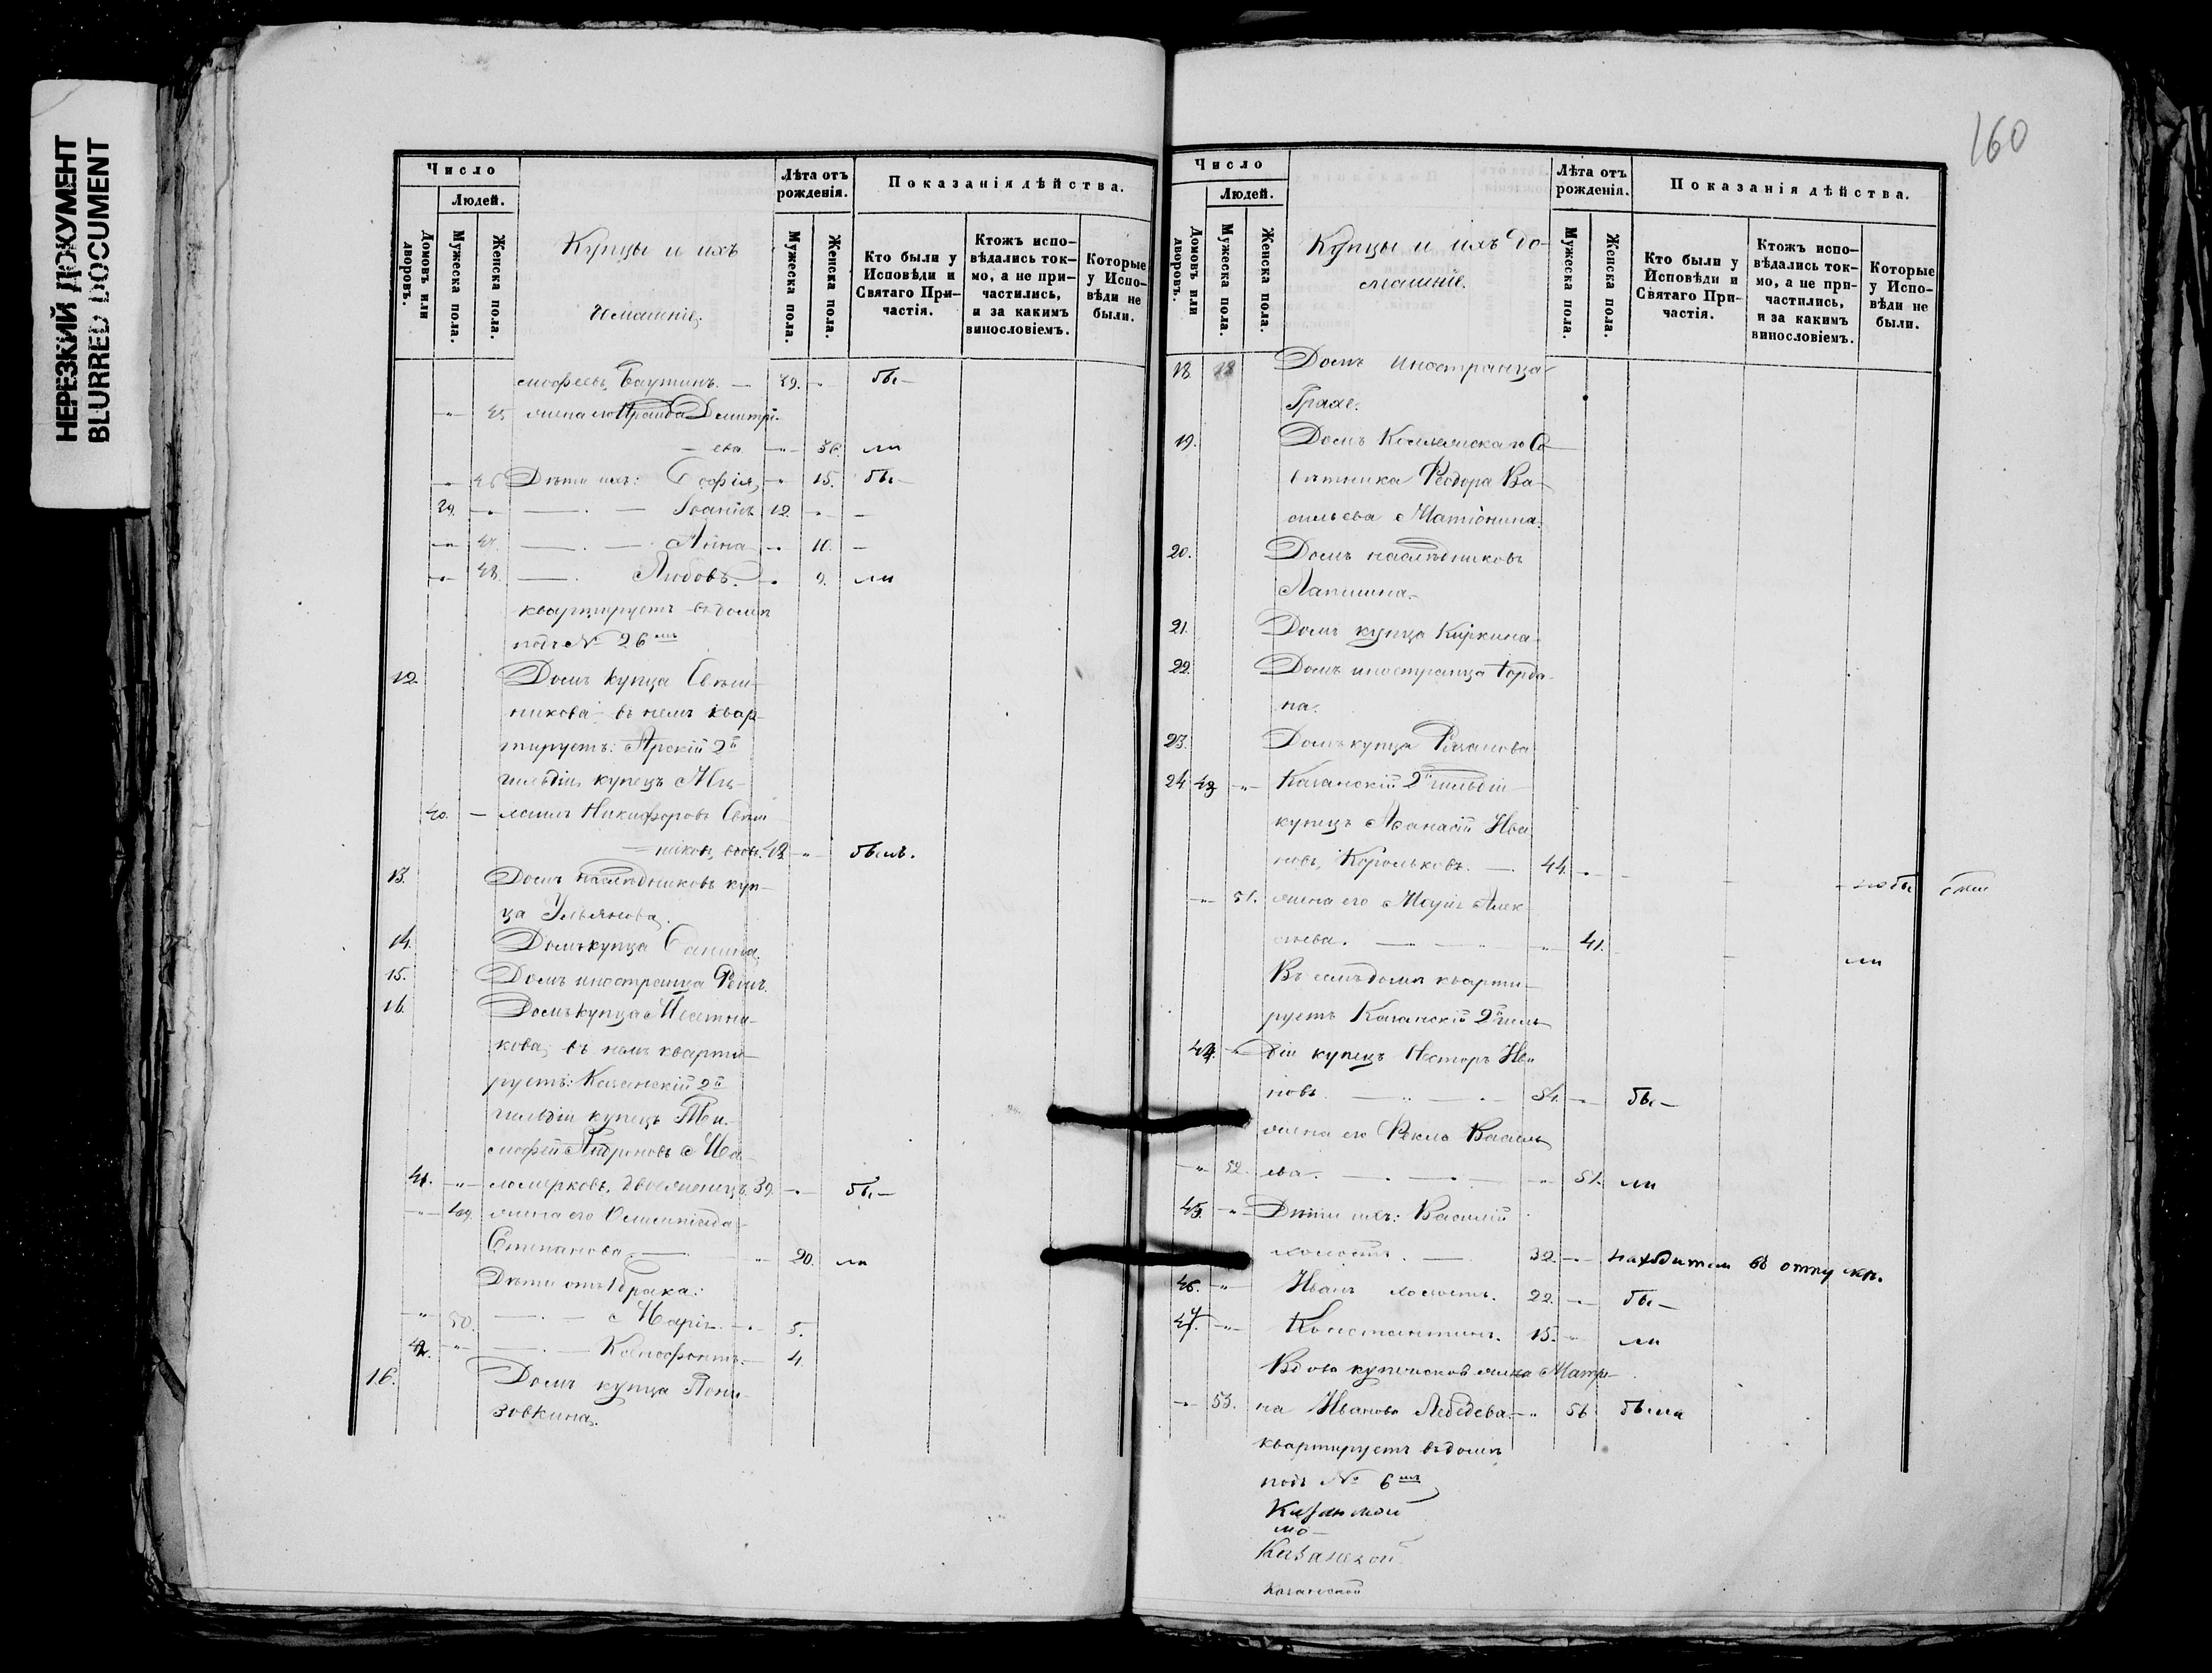 НЕРЕЗКИЙ ДОКУМЕНТ
BLURRED DOCUMENT
Число
Людей.
Домовъ или дворовъ.
Мужеска пола.
Женска пола.
Купцы и ихъ
домашніе.
Лѣта отъ рожденія.
Мужеска пола.
Женска пола.
Показанія дѣйства.
Кто были у Исповѣди и Святаго При-частія.
Ктожъ испо-вѣдались ток-мо, а не при-частились, и за какимъ винословіемъ.
Которые у Испо-вѣди не были.
мофеевъ Баутинъ. — 49. бы—
жена его Дмитрі-
ева 36. ли
Дѣти ихъ: Софія 15. бы—
39. Іоаннъ 12. —
47. Анна 10. —
48. Любовь. 9. ли
квартируетъ въ домѣ
подъ № 26мъ
12. Домъ купца Свѣш-
никова въ немъ квар-
тируетъ: Арскій 2й
гильдіи купецъ Ми-
40. — хаилъ Никифоровъ Свѣш
никовъ, вдовъ. 48. былъ.
13. Домъ наслѣдниковъ куп-
ца Ульянова.
14. Домъ купца Санина.
15. Домъ иностранца
16. Домъ купца Мѣстни-
кова, въ немъ кварти-
руетъ: Казанскій 2й
гильдіи купецъ Ти-
мофей Андреновъ Ма-
41. ломерковъ, двоеженецъ. 39. бы—
49. жена его Олимпіада
Степанова 20. ли
Дѣти отъ 1 брака:
50. Марія 5.
42. Ксенофонтъ. 4.
16. Домъ купца Пони-
зовкина.
160
Число
Людей.
Домовъ или дворовъ.
Мужеска пола.
Женска пола.
Купцы и ихъ до-
машніе.
Лѣта отъ рожденія.
Мужеска пола.
Женска пола.
Показанія дѣйства.
Кто были у Исповѣди и Святаго При-частія.
Ктожъ испо-вѣдались ток-мо, а не при-частились, и за какимъ винословіемъ.
Которые у Испо-вѣди не были.
18. Домъ иностранца
Грахе.
19. Домъ Коллежскаго Со-
вѣтника Ѳеодора Ва-
сильева Матюнина.
20. Домъ наслѣдниковъ
Лапшина.
21. Домъ купца Киркина.
22. Домъ иностранца Горда-
на.
23. Домъ купца Рязанова
24 43 Казанскій 2й гильдіи
купецъ Аѳанасій Ива
новъ, Корольковъ. — 44. не бы
51. жена его Марія Алек
сѣева. 41. ли
Въ семъ домѣ кварти-
руетъ Казанскій 2й гиль
44. діи купецъ Несторъ Ива
новъ 54. бы—
жена его Ѳекла Василь
52. ева. 51. ли
45. Дѣти ихъ: Василій
холостъ. — 32. находится въ отпускѣ.
46. Иванъ холостъ. 22. бы—
47. Константинъ. 15. ли
Вдова купеческая жена Матре-
53. на Иванова Лебедева. 56 была
квартируетъ въ домѣ
подъ № 6мъ
Казанской
Казанской